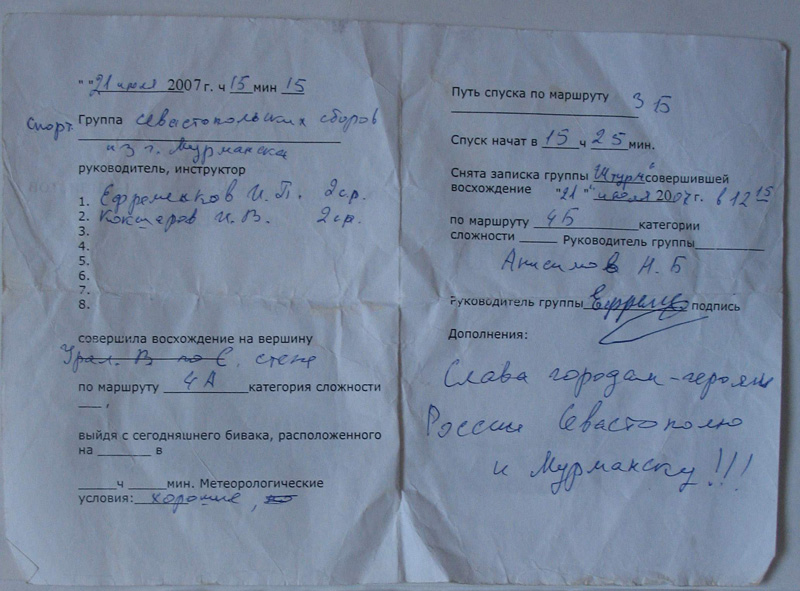 " "21 июля 2007 г. ч 15 мин 15
Спорт. Группа севастопольских сборов
из г. Мурманска
руководитель, инструктор
1. Ефременков И. П. 2 ср.
2. Кокшаров И. В. 2 ср.
3.
4.
5.
6.
7.
8.
совершила восхождение на вершину
В по С. стене
по маршруту 4А категория сложности
,
выйдя с сегодняшнего бивака, расположенного
на в
ч мин. Метеорологические
условия: хорошие,
Путь спуска по маршруту 3Б
Спуск начат в 15 ч 25 мин.
Снята записка группы "Штурм" совершившей
восхождение "21" июля 2007 г. в 12 15
по маршруту 4Б категории
сложности Руководитель группы
Анисимов Н. Б
Руководитель группы подпись
Дополнения:
Слава городам-героям
России Севастополю
и Мурманску!!!